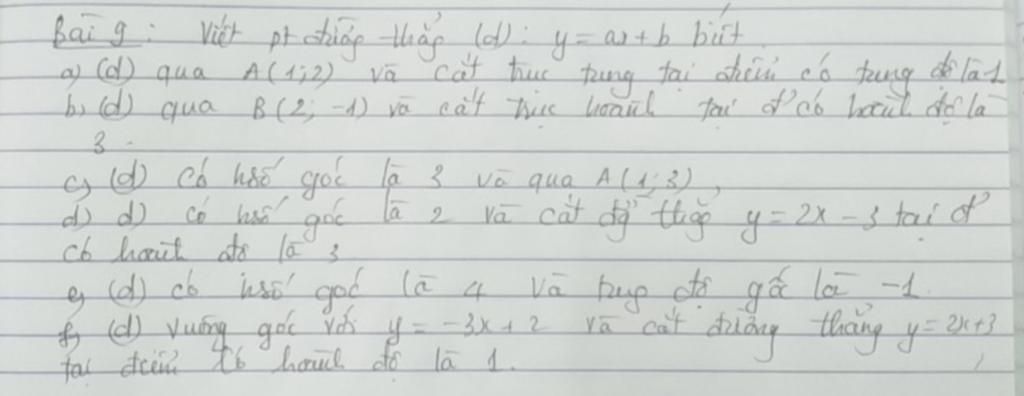 Bài 9: Viết pt đường thẳng (d): y = ax + b biết
a) (d) qua A(1;2) và cắt trục tung tại điểm có tung độ là 1
b, (d) qua B(2; -1) và cắt trục hoành tại đ' có hoành độ là
3.
c) (d) có hsố góc là 3 và qua A(1;3),
d) d) có hsố góc là 2 và cắt đg thg y = 2x - 3 tại đ'
có hoành độ là 3
e) (d) có hsố góc là 4 và tung độ gốc là -1.
f) (d) vuông góc với y = -3x + 2 và cắt đường thẳng y = 2x+3
tại điểm có hoành độ là 1.